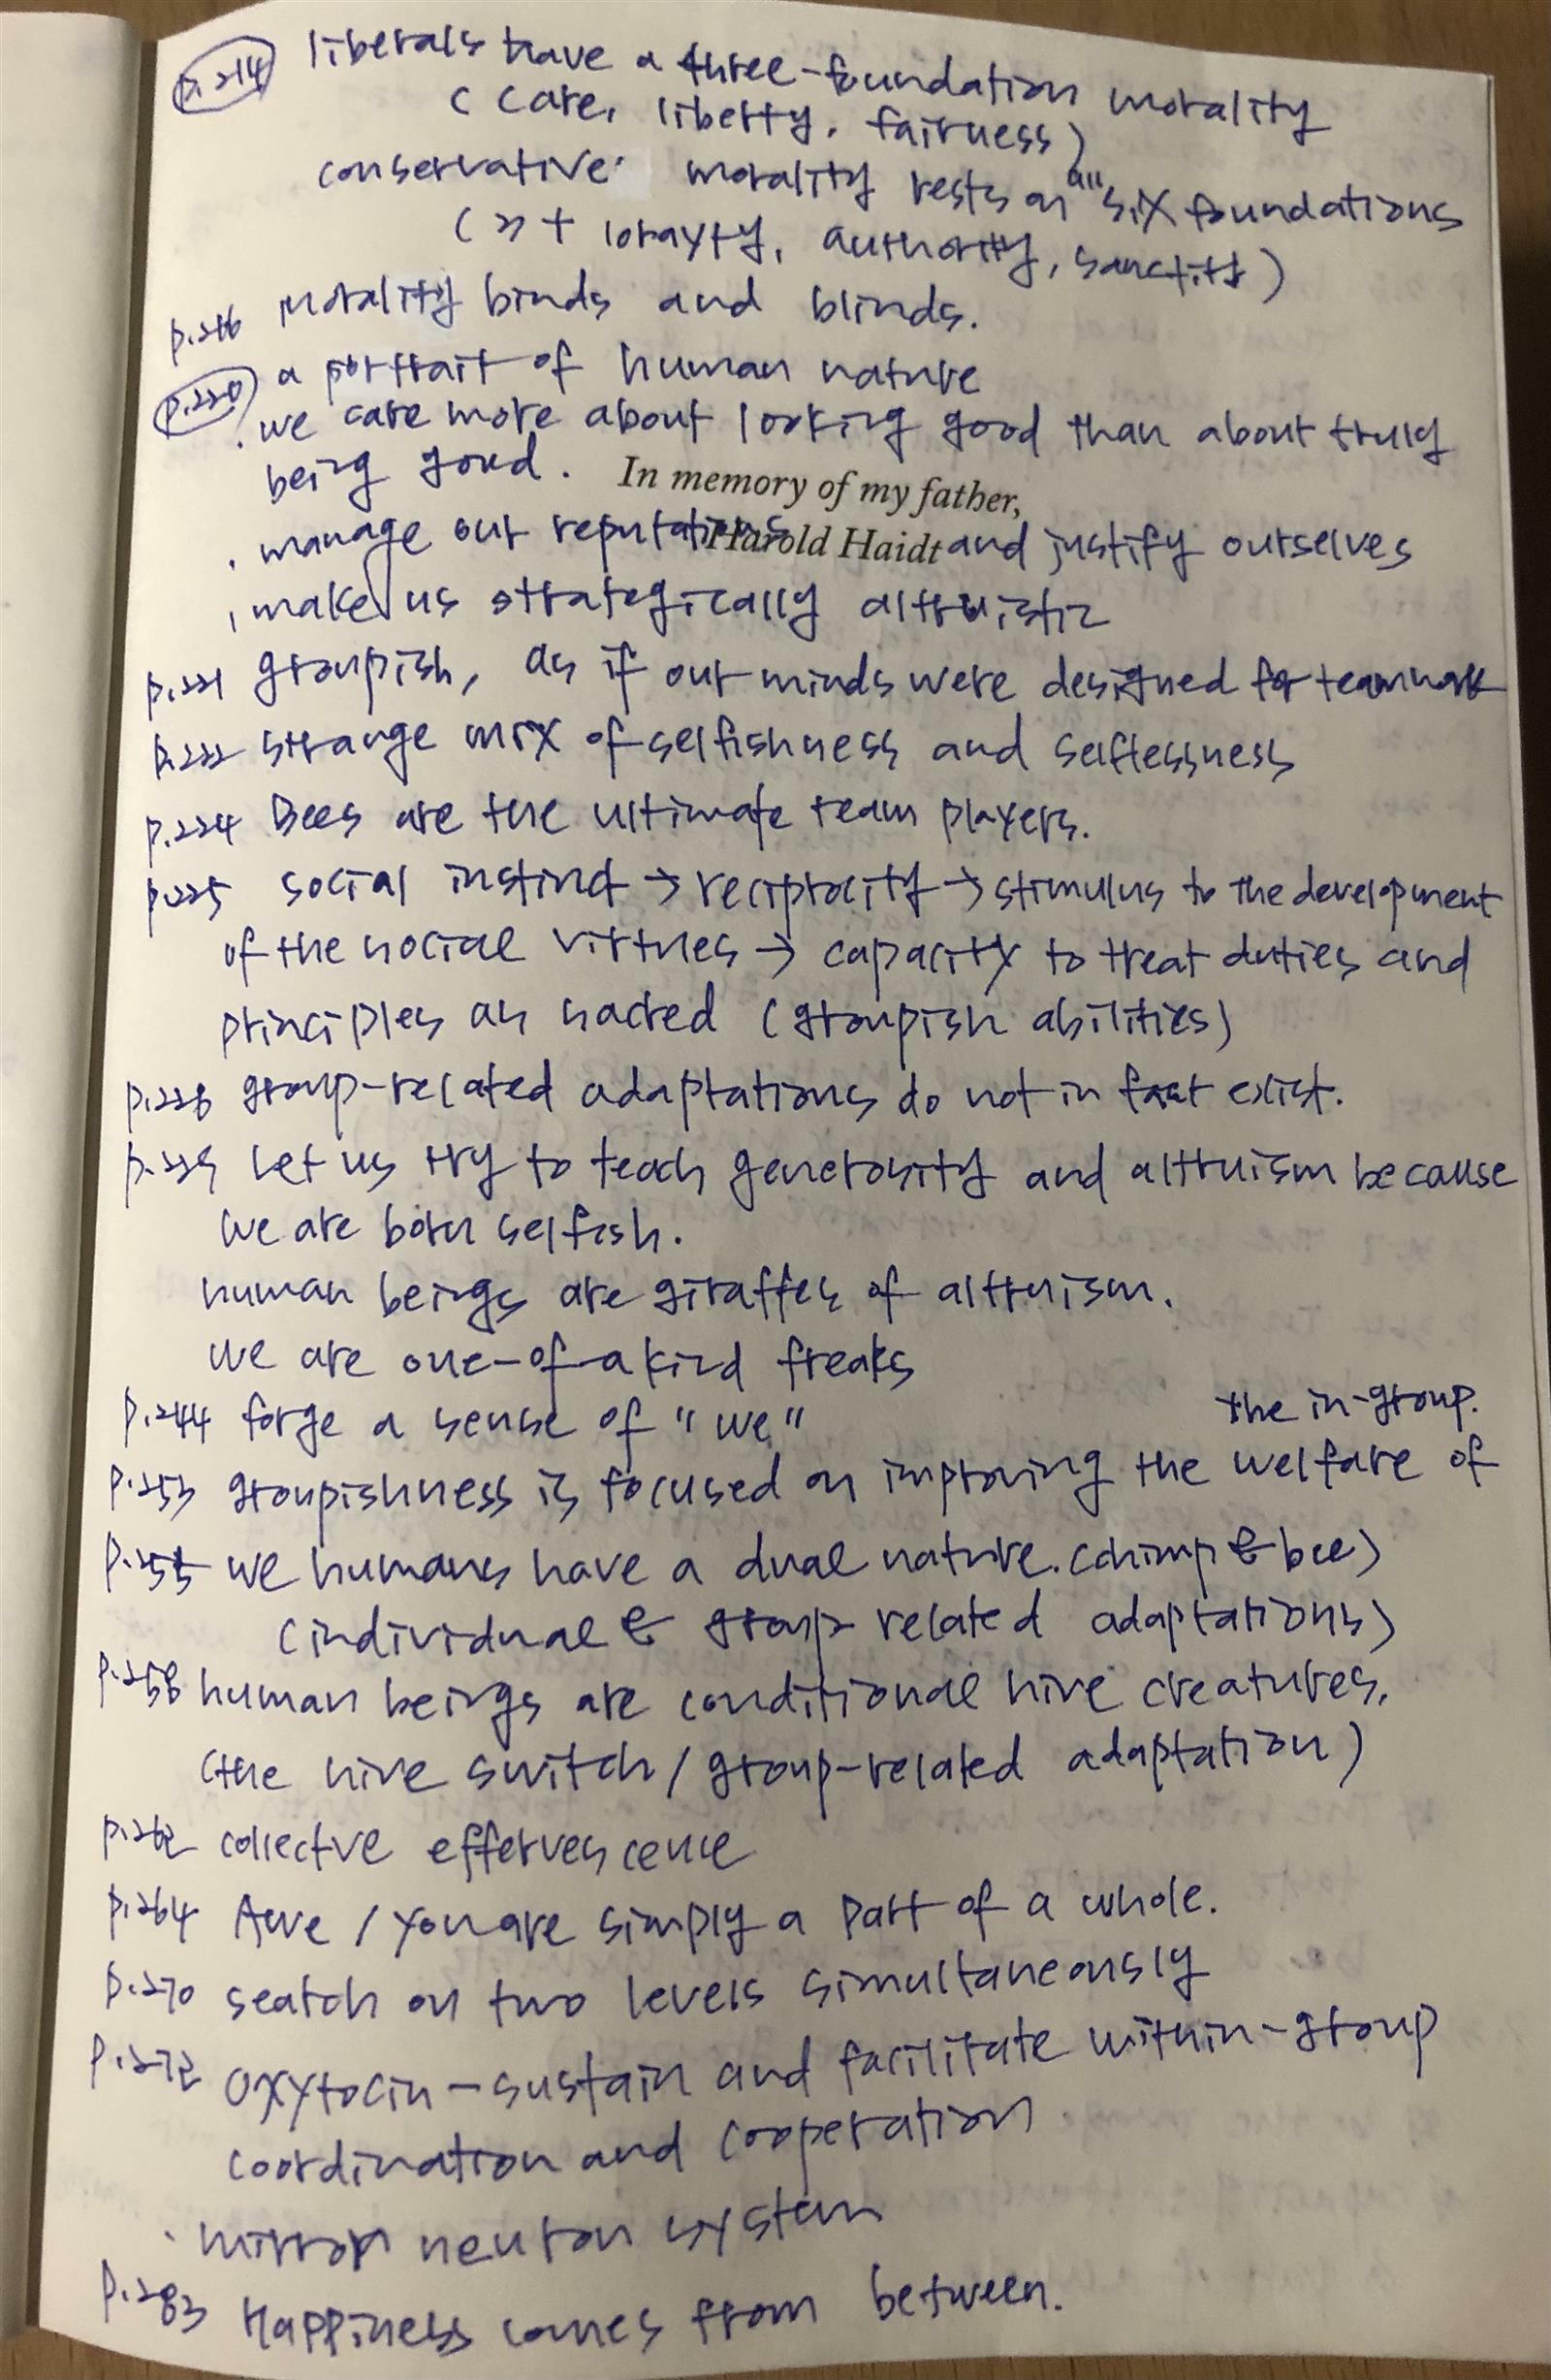 p.214 liberals have a three-foundation morality
(care, liberty, fairness)
conservative morality rests on all six foundations
(〃 + loyalty, authority, sanctity)
p.216 Morality binds and blinds.
p.220 a portrait of human nature
. we care more about looking good than about truly
being good. In memory of my father,
. manage our reputations Harold Haidt and justify ourselves
, make us strategically altruistic
p.221 groupish, as if our minds were designed for teamwork
p.222 strange mix of selfishness and selflessness
p.224 Bees are the ultimate team players.
p.225 social instinct → reciprocity → stimulus to the development
of the social virtues → capacity to treat duties and
principles as sacred (groupish abilities)
p.228 group-related adaptations do not in fact exist.
p.229 Let us try to teach generosity and altruism because
we are born selfish.
human beings are giraffes of altruism.
we are one-of-a kind freaks
p.244 forge a sense of "we"
the in-group.
p.253 groupishness is focused on improving the welfare of
p.255 we humans have a dual nature. (chimp & bee)
(individual & group related adaptations)
p.258 human beings are conditional hive creatures.
(the hive switch / group-related adaptation)
p.262 collective effervescence
p.264 Awe / you are simply a part of a whole.
p.270 search on two levels simultaneously
p.272 oxytocin - sustain and facilitate within-group
coordination and cooperation.
. mirror neuron system
p.283 Happiness comes from between.